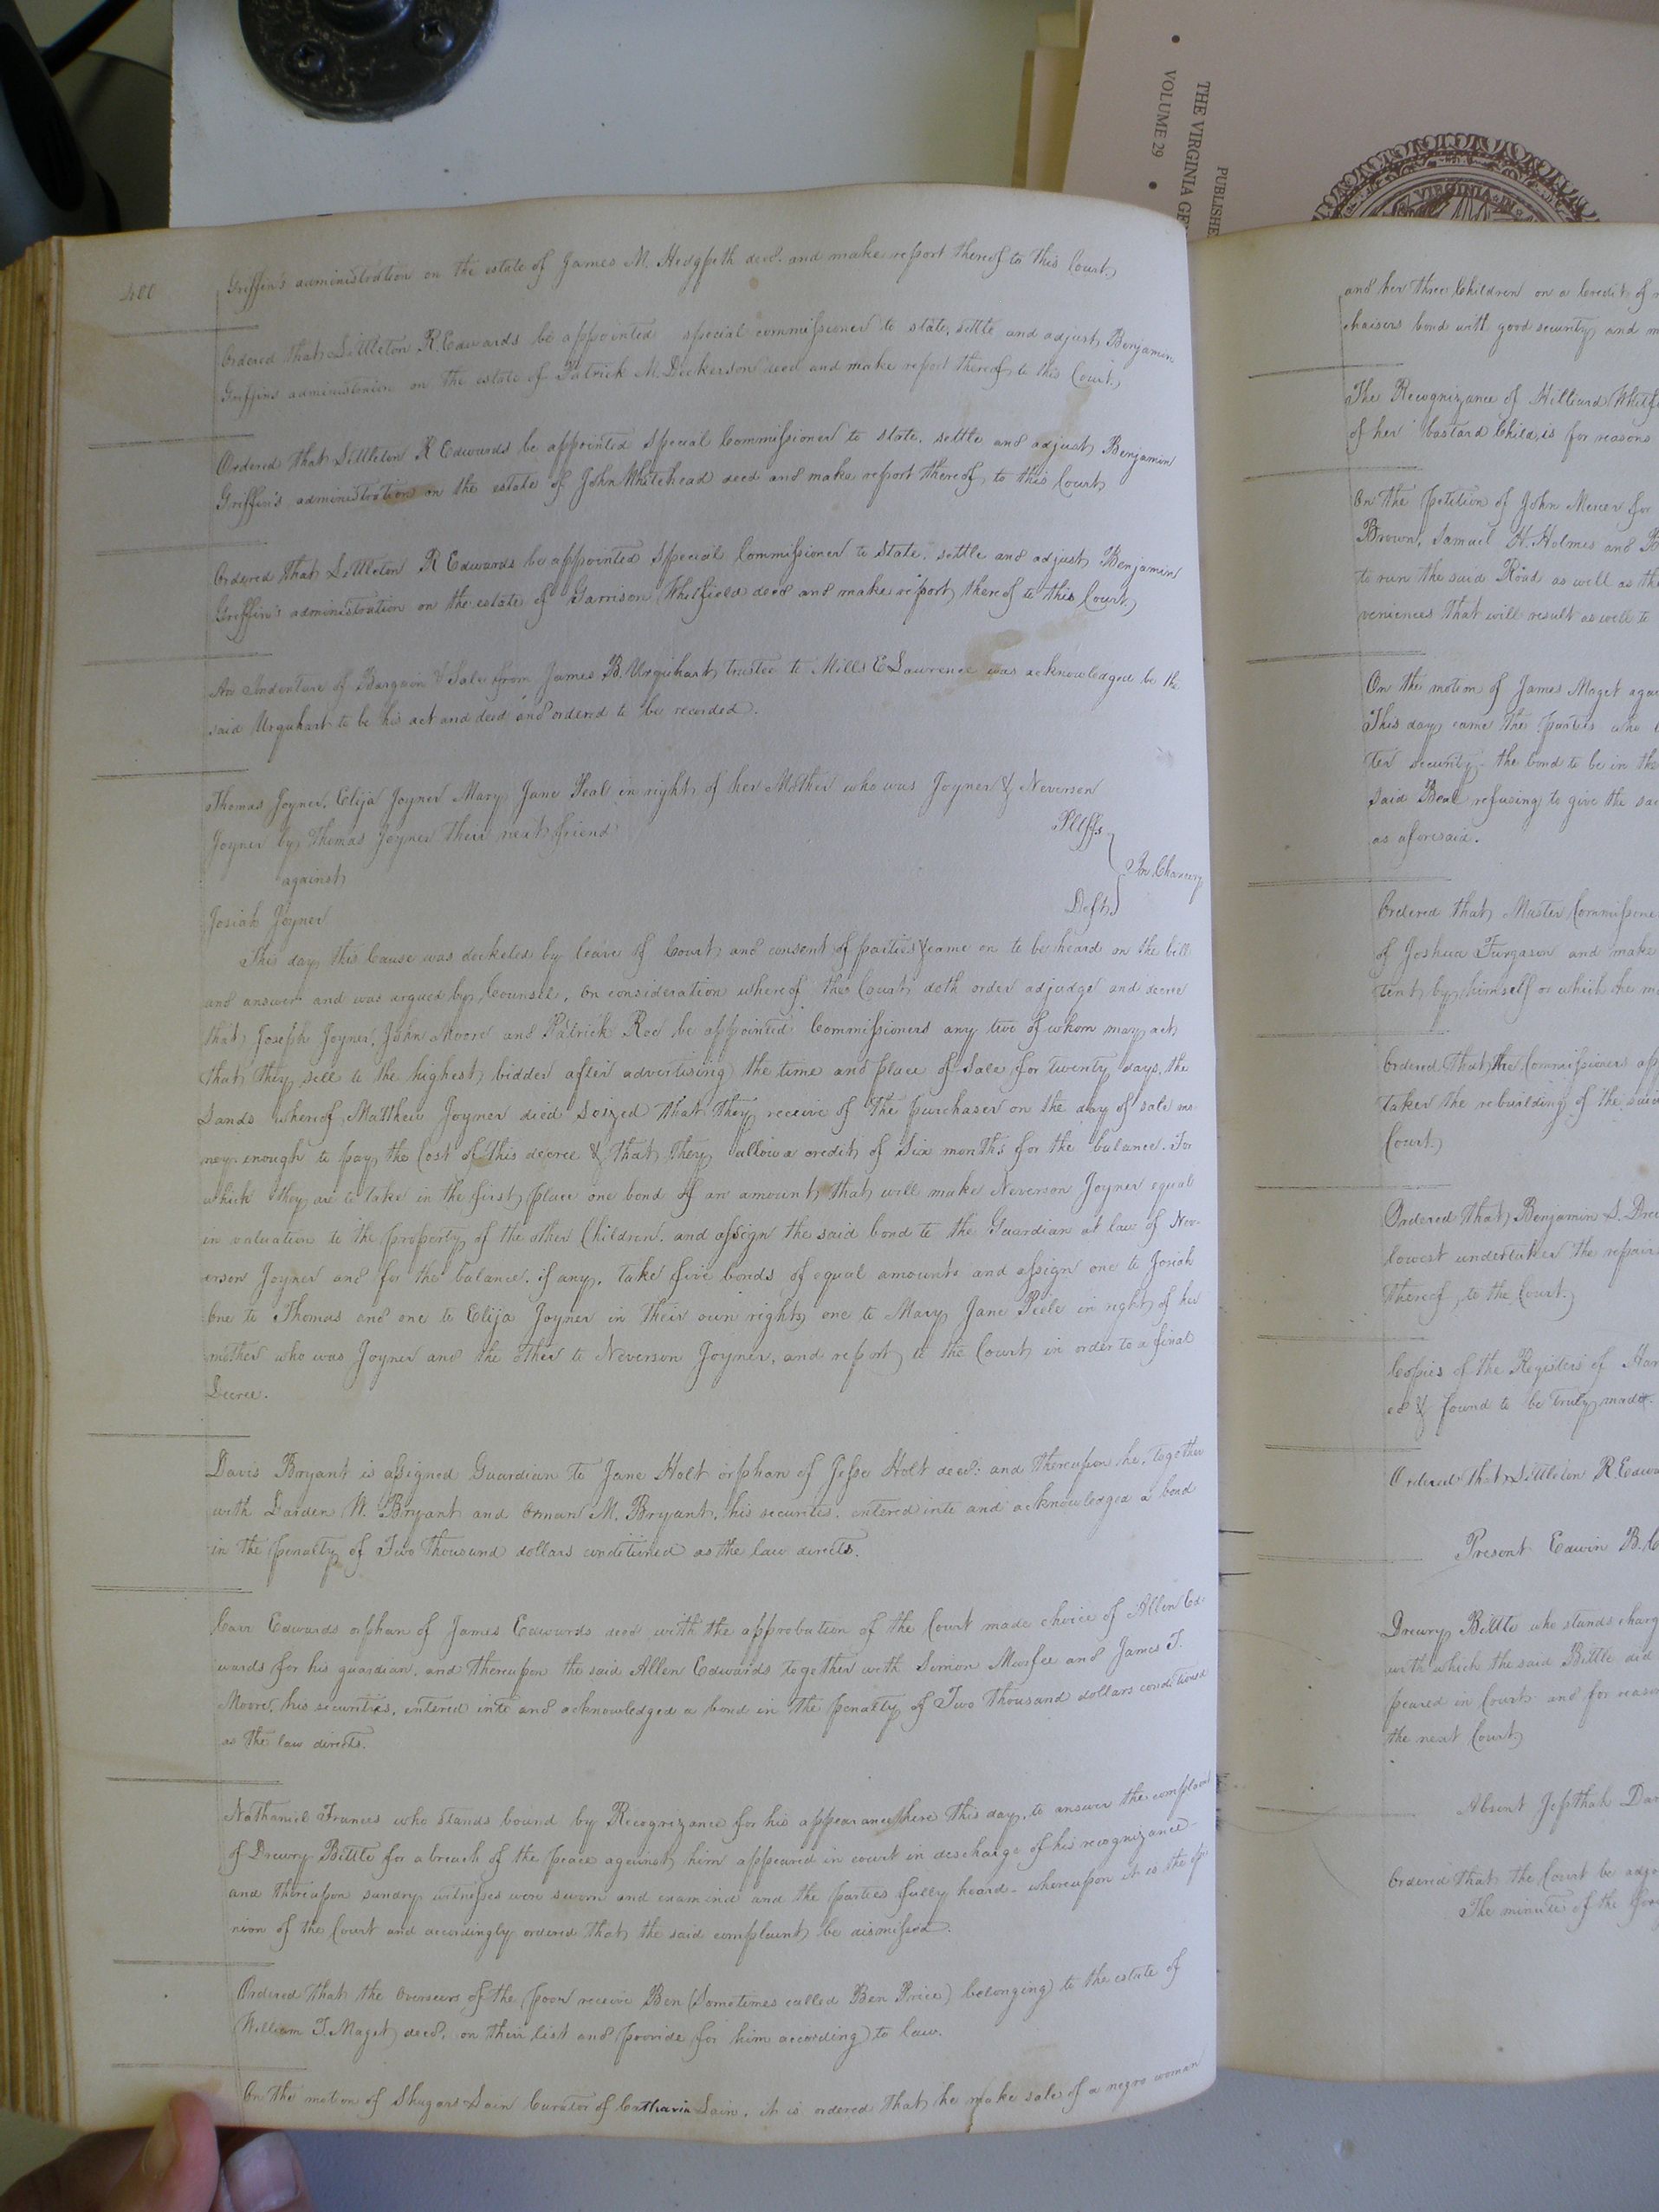 THE VIRGINIA GE
VOLUME 29
PUBLISHE
VIRGINIA IN
400
Griffin's administration on the estate of James M. Hedgpeth decd. and make report thereof to this Court.
Ordered that Littleton R. Edwards be appointed special commissioner to state, settle and adjust Benjamin
Griffins administraion on the estate of Patrick M. Dickerson decd and make report thereof to this Court.
Ordered that Littleton R Edwards be appointed Special Commissioner to state, settle and adjust Benjamin
Griffin's administration on the estate of John Whitehead decd and make report thereof to this Court
Ordered that Littleton R Edwards be appointed Special Commissioner to State, settle and adjust Benjamin
Griffin's administration on the estate of Garrison Whitfield decd and make report thereof to this Court.
An Indenture of Bargain & Sale from James B. Urquhart trustee to Mills E Lawrence was acknowledged be the
said Urquhart to be his act and deed and ordered to be recorded.
Thomas Joyner, Elija Joyner Mary Jane Peal in right of her Mother who was Joyner & Neverson
Joyner by Thomas Joyner their next friend Pltffs
against In Chancery
Josiah Joyner Deft
This day this Cause was docketed by leave of Court and consent of parties & came on to be heard on the bill
and answer and was argued by Counsel, on consideration whereof the Court doth order adjudge and decree
that Joseph Joyner, John Moore and Patrick Roe be appointed Commissioners any two of whom may act
that they sell to the highest bidder after advertising the time and place of Sale for twenty days, the
Lands whereof Matthew Joyner died Seized that they receive of the purchaser on the day of sale mo
ney enough to pay the Cost of this decree & that they allow a credit of Six months for the balance. For
which they are to take in the first place one bond of an amount that will make Neverson Joyner equal
in valuation to the property of the other Children. and assign the said bond to the Guardian at law of Nev-
erson Joyner and for the balance, if any, take five bonds of equal amounts and assign one to Josiah
One to Thomas and one to Elija Joyner in their own rights one to Mary Jane Peele in right of her
mother who was Joyner and the other to Neverson Joyner, and report to the Court in order to a final
Decree.
Davis Bryant is assigned Guardian to Jane Holt orphan of Jesse Holt decd: and thereupon he, together
with Darden W. Bryant and Orman M. Bryant, his securities, entered into and acknowledged a bond
in the penalty of Two thousand dollars conditioned as the law directs.
Carr Edwards orphan of James Edwards decd with the approbation of the Court made choice of Allen Ed-
wards for his guardian, and thereupon the said Allen Edwards together with Simon Murfee and James T.
Moore, his securities, entered into and acknowledged a bond in the penalty of Two thousand dollars conditioned
as the law directs.
Nathaniel Frances who stands bound by Recognizance for his appearance here this day, to answer the complaint
of Drewry Bittle for a breach of the peace against him appeared in court in descharge of his recognizance-
and thereupon sundry witnesses were sworn and examined and the parties fully heard - whereupon it is the opi
nion of the Court and accordingly ordered that the said complaint be dismissed.
Ordered that the Overseers of the poor receive Ben (Sometimes called Ben Price) belonging to the estate of
William T. Maget decd. on their list and provide for him according to law.
On the motion of Shugars Lain Curator of Catharin Lain, it is ordered that he make sale of a negro woman
and her three Children on a Credit of
chasers bond with good security and m
The Recognizance of Hilliard Whitfi
of her bastard Child, is for reasons
On the petition of John Mercer for
Brown, Samuel H. Holmes and B
to run the said Road as well as the
veniences that will result as well to
On the motion of James Maget agai
This day came the parties who
ter security - the bond to be in the
said Beal refusing to give the sai
as aforesaid.
Ordered that Master Commissione
of Joshua Furgason and make
tent by himself or which the
Ordered that the Commissioners ap
taken the rebuilding of the said
Court.
Ordered that Benjamin S. Drew
lowest undertaker the repairs
thereof to the Court.
Copies of the Registers of Har
ed & found to be truly made.
Ordered that Littleton R. Edwa
Present Edwin B. C
Drewry Bittle who stands charg
with which the said Bittle did
peared in Court and for reason
the next Court
Absent Jepthah Dar
Ordered that the Court be adjo
The minutes of the fore